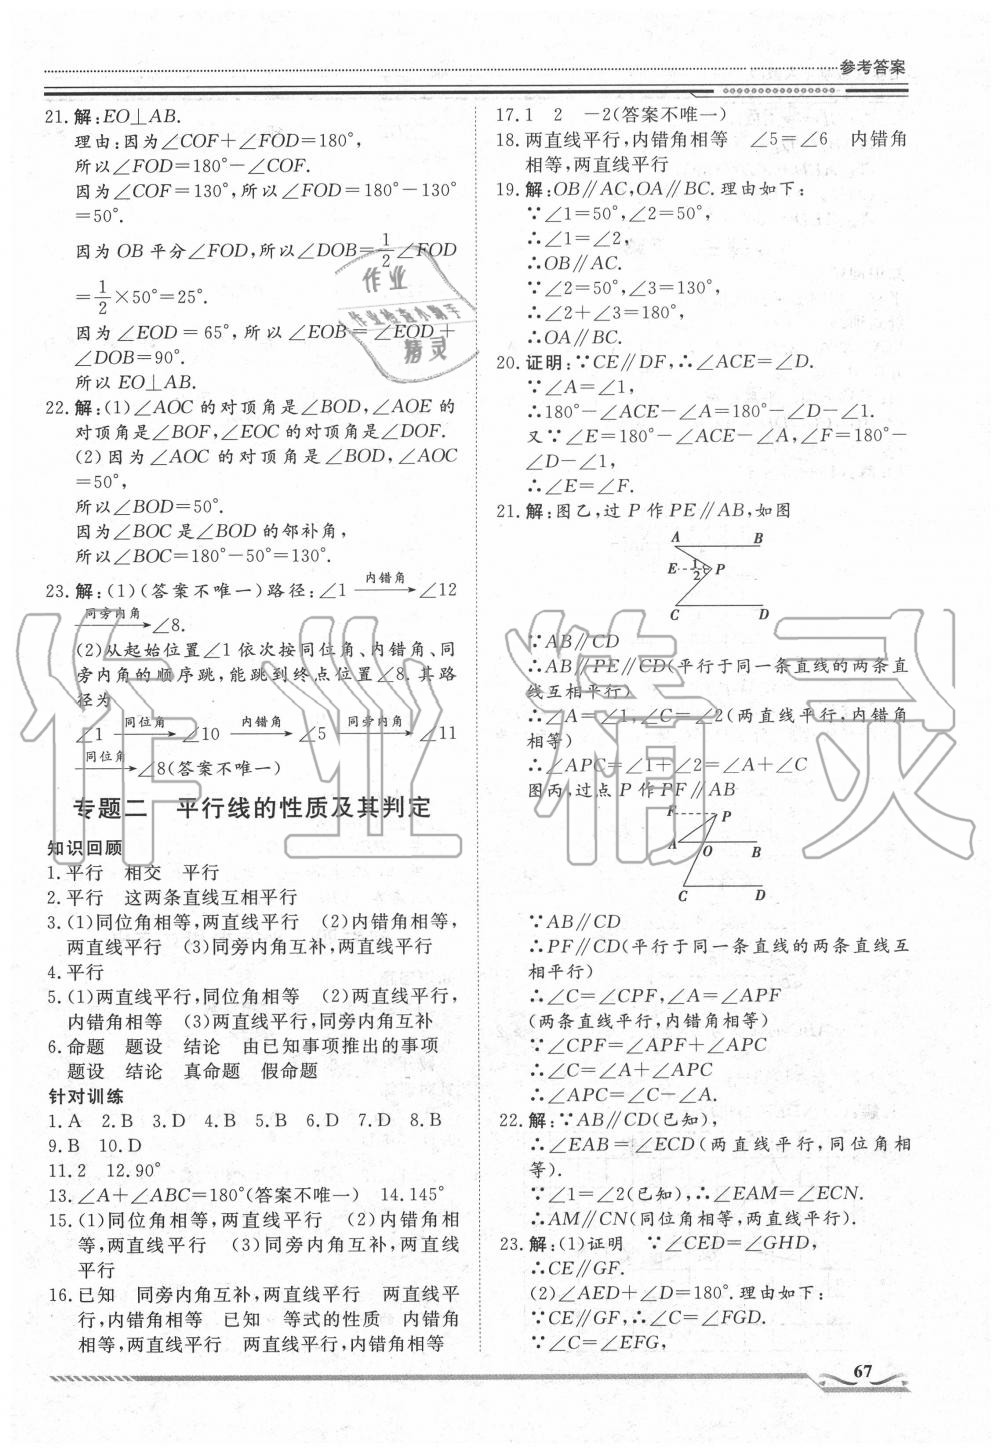 参考答案
21.解:EO⊥AB.
理由:因为∠COF+∠FOD=180°,
所以∠FOD=180°-∠COF.
因为∠COF=130°,所以∠FOD=180°-130°
=50°.
因为 OB 平分∠FOD,所以∠DOB=1/2∠FOD
=1/2×50°=25°.
因为∠EOD=65°,所以∠EOB=∠EOD+
∠DOB=90°.
所以 EO⊥AB.
22.解:(1)∠AOC 的对顶角是∠BOD,∠AOE 的
对顶角是∠BOF,∠EOC 的对顶角是∠DOF.
(2)因为∠AOC 的对顶角是∠BOD,∠AOC
=50°,
所以∠BOD=50°.
因为∠BOC 是∠BOD 的邻补角,
所以∠BOC=180°-50°=130°.
23.解:(1)(答案不唯一)路径:∠1 —内错角→ ∠12
—同旁内角→ ∠8.
(2)从起始位置∠1 依次按同位角、内错角、同
旁内角的顺序跳,能跳到终点位置∠8.其路
径为
∠1 —同位角→ ∠10 —内错角→ ∠5 —同旁内角→ ∠11
—同位角→ ∠8(答案不唯一)
专题二 平行线的性质及其判定
知识回顾
1.平行 相交 平行
2.平行 这两条直线互相平行
3.(1)同位角相等,两直线平行 (2)内错角相等,
两直线平行 (3)同旁内角互补,两直线平行
4.平行
5.(1)两直线平行,同位角相等 (2)两直线平行,
内错角相等 (3)两直线平行,同旁内角互补
6.命题 题设 结论 由已知事项推出的事项
题设 结论 真命题 假命题
针对训练
1.A 2.B 3.D 4.B 5.B 6.D 7.D 8.B
9.B 10.D
11.2 12.90°
13.∠A+∠ABC=180°(答案不唯一) 14.145°
15.(1)同位角相等,两直线平行 (2)内错角相
等,两直线平行 (3)同旁内角互补,两直线
平行
16.已知 同旁内角互补,两直线平行 两直线平
行,内错角相等 已知 等式的性质 内错角
相等,两直线平行 两直线平行,内错角相等
17.1 2 -2(答案不唯一)
18.两直线平行,内错角相等 ∠5=∠6 内错角
相等,两直线平行
19.解:OB∥AC,OA∥BC.理由如下:
∵∠1=50°,∠2=50°,
∴∠1=∠2,
∴OB∥AC.
∵∠2=50°,∠3=130°,
∴∠2+∠3=180°,
∴OA∥BC.
20.证明:∵CE∥DF,∴∠ACE=∠D.
∵∠A=∠1,
∴180°-∠ACE-∠A=180°-∠D-∠1.
又∵∠E=180°-∠ACE-∠A,∠F=180°-
∠D-∠1,
∴∠E=∠F.
21.解:图乙,过 P 作 PE∥AB,如图
A B
E 1 2 P
C D
∵AB∥CD
∴AB∥PE∥CD(平行于同一条直线的两条直
线互相平行)
∴∠A=∠1,∠C=∠2(两直线平行,内错角
相等)
∴∠APC=∠1+∠2=∠A+∠C
图丙,过点 P 作 PF∥AB
F P
A O B
C D
∵AB∥CD
∴PF∥CD(平行于同一条直线的两条直线互
相平行)
∴∠C=∠CPF,∠A=∠APF
(两条直线平行,内错角相等)
∵∠CPF=∠APF+∠APC
∴∠C=∠A+∠APC
∴∠APC=∠C-∠A.
22.解:∵AB∥CD(已知),
∴∠EAB=∠ECD(两直线平行,同位角相
等).
∵∠1=∠2(已知),∴∠EAM=∠ECN.
∴AM∥CN(同位角相等,两直线平行).
23.解:(1)证明 ∵∠CED=∠GHD,
∴CE∥GF.
(2)∠AED+∠D=180°.理由如下:
∵CE∥GF,∴∠C=∠FGD.
∵∠C=∠EFG,
67
作业
作业检查小助手
精灵
作业精灵